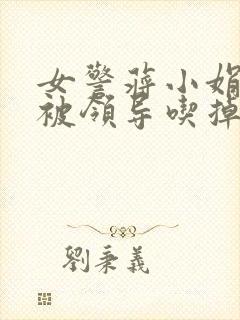 女警蒋小娟
被领导喫掉
劉秉義